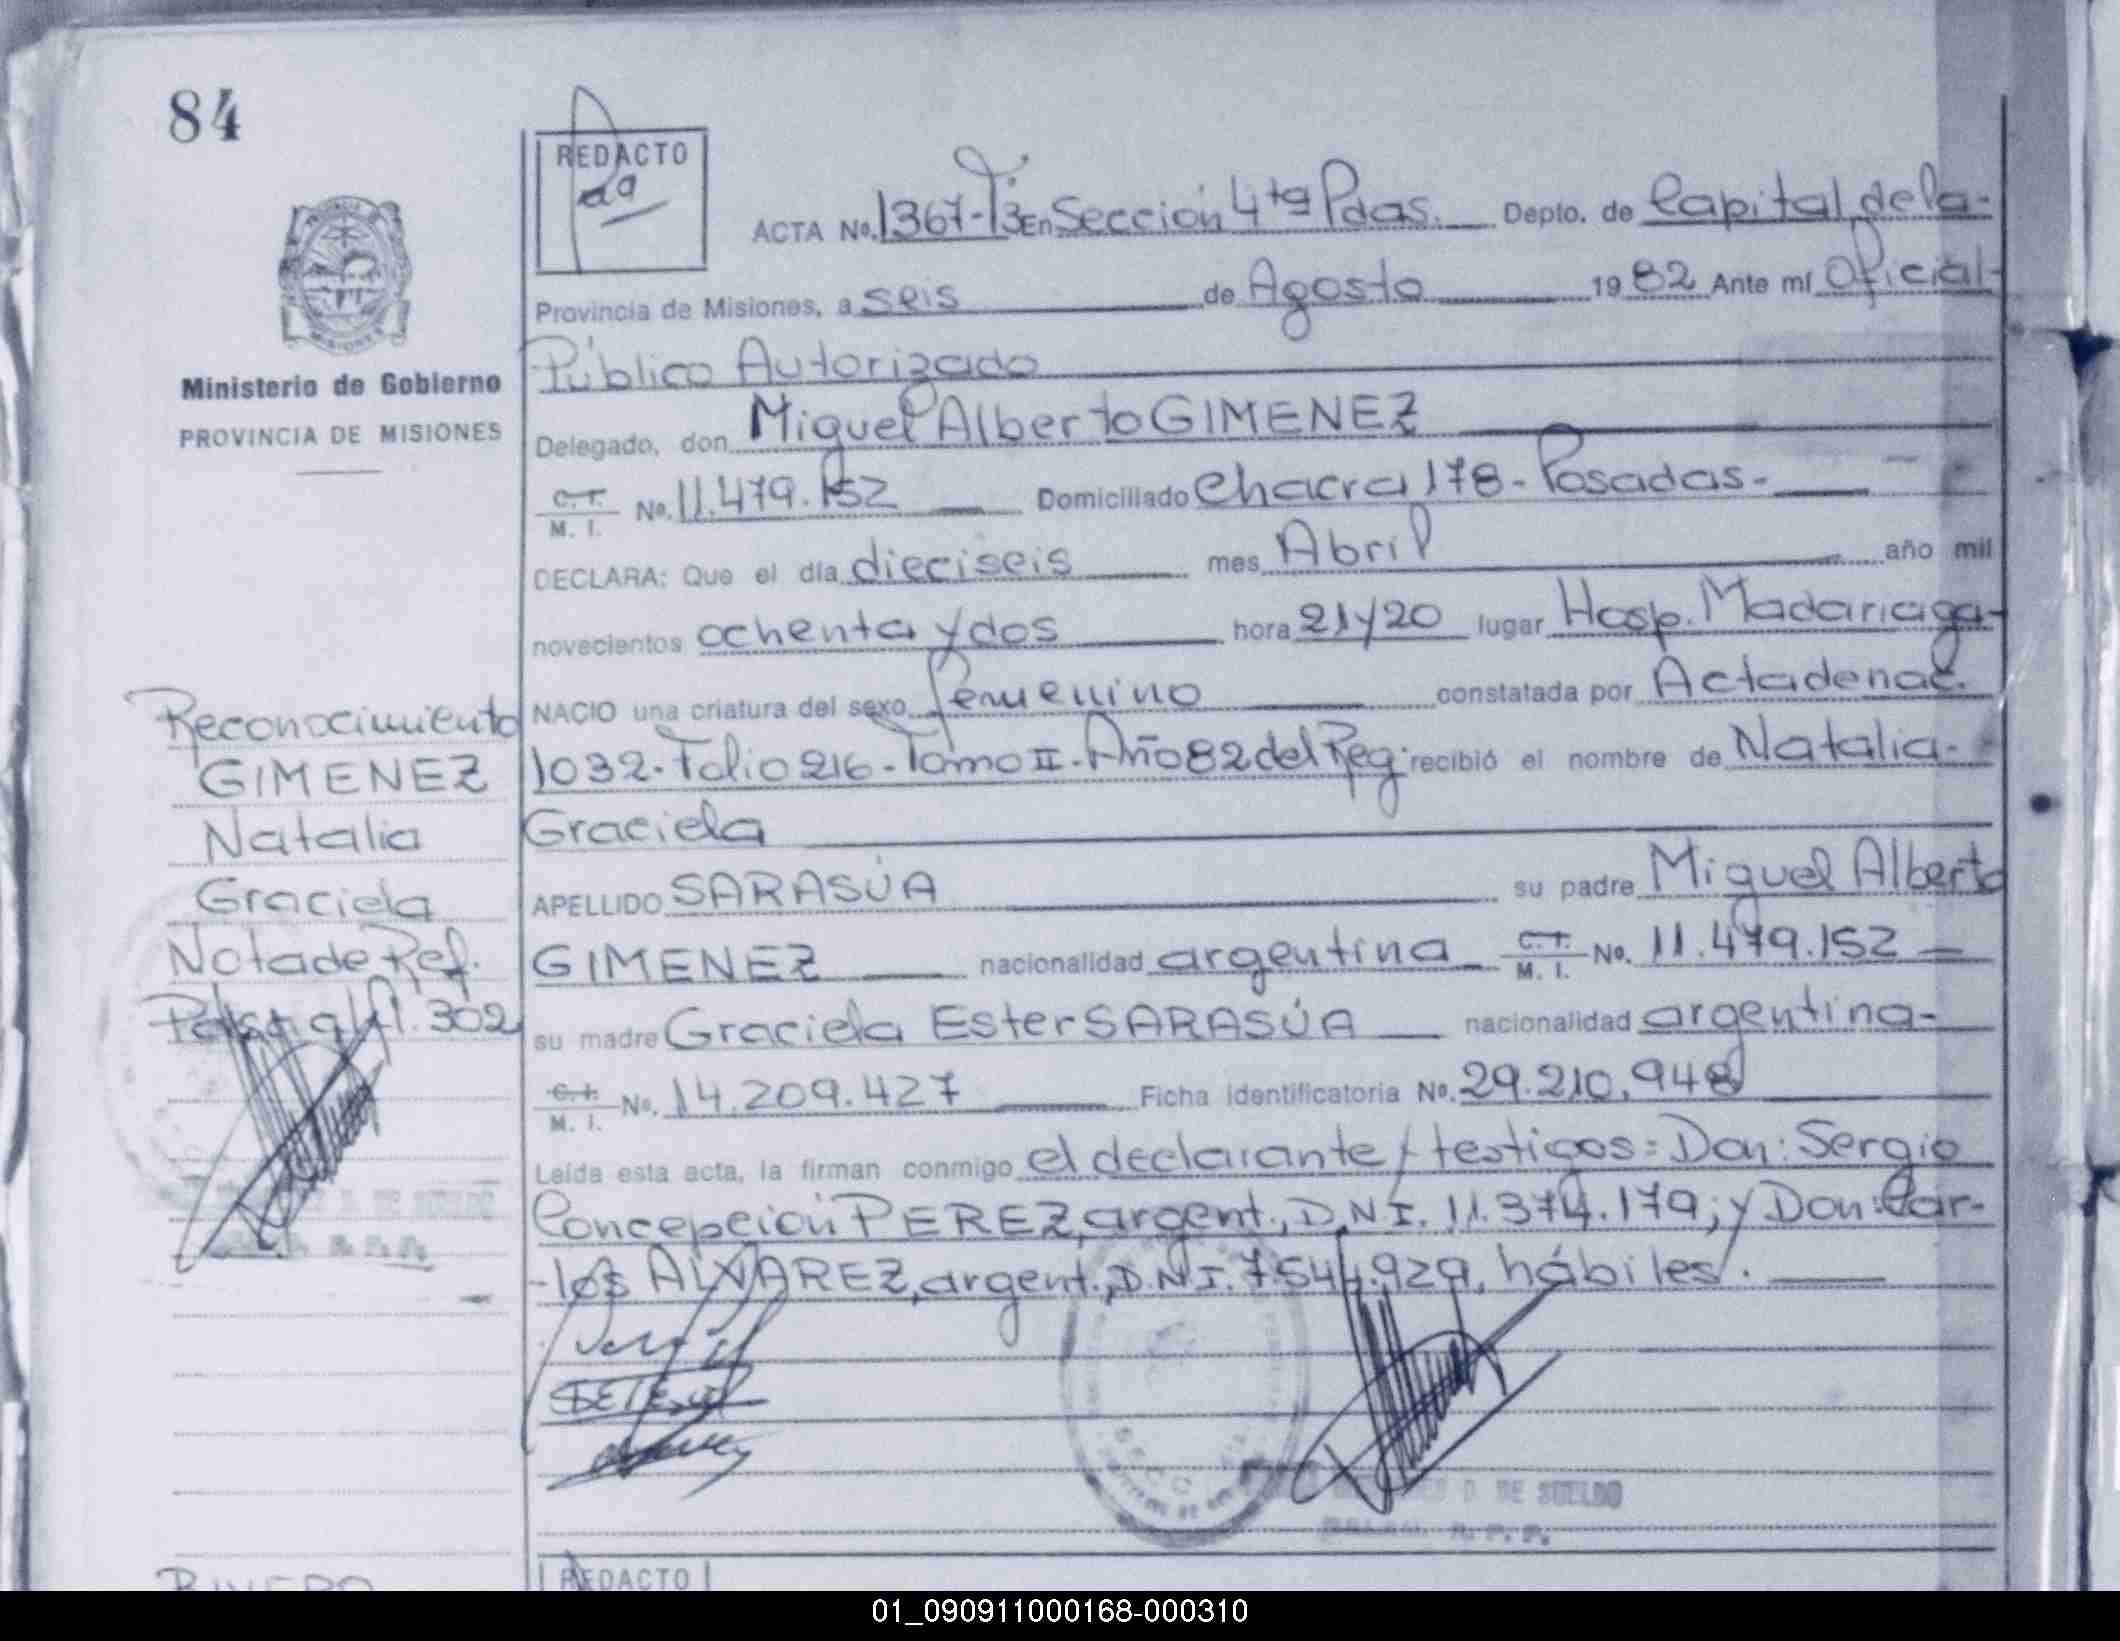 84
REDACTO
ACTA No. 1367-T°3 En Sección 4ta Pdas. Depto. de Capital de la-
Provincia de Misiones, a seis de Agosto 1982 Ante mí Oficial-
Público Autorizado
Ministerio de Gobierno
PROVINCIA DE MISIONES
Delegado, don Miguel Alberto GIMENEZ
C.T. M. I. No. 11.479.152 Domiciliado Chacra 178-Posadas.
DECLARA: Que el día dieciseis mes Abril año mil
novecientos ochenta y dos hora 21 y 20 lugar Hosp. Madariaga-
NACIO una criatura del sexo femenino constatada por Acta de nac.
1032-Folio 216-Tomo II-Año 82 del Reg. recibió el nombre de Natalia-
Graciela
APELLIDO SARASÚA su padre Miguel Alberto
GIMENEZ nacionalidad argentina C.T. M. I. No. 11.479.152
su madre Graciela Ester SARASÚA nacionalidad argentina-
C.I. M. I. No. 14.209.427 Ficha identificatoria No. 29.210.948
Leída esta acta, la firman conmigo el declarante y testigos: Don: Sergio
Concepción PEREZ, argent., D.N.I. 11.374.179; y Don: Car-
-los ALVAREZ, argent., D.N.I. 7.544.929, hábiles.
Reconocimiento
GIMENEZ
Natalia
Graciela
Nota de Ref.
Pasa a fl. 302
D. DE SUELDO
REDACTO
01_090911000168-000310